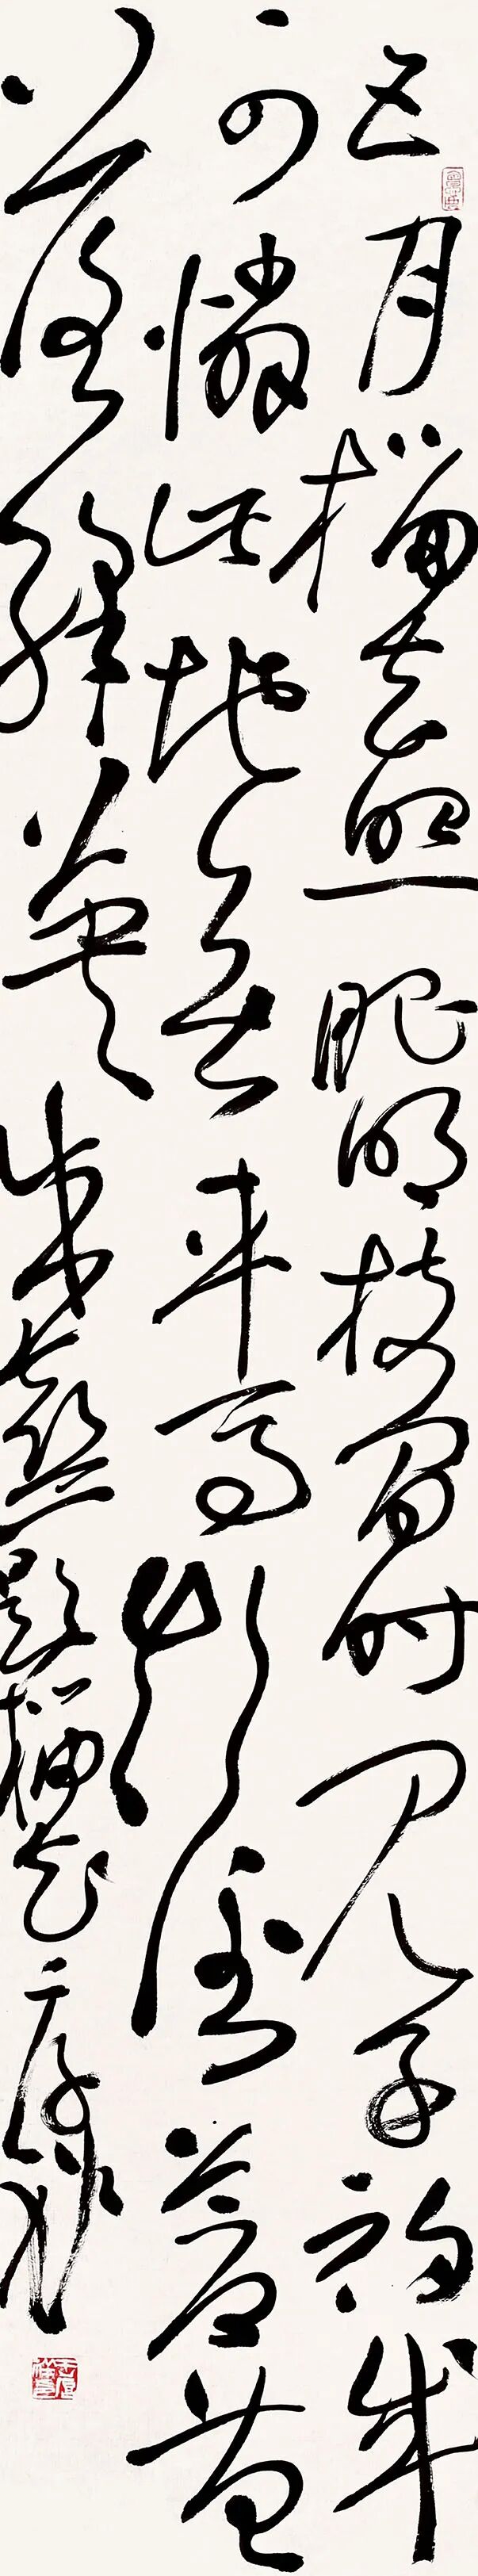 五月榴花照眼明枝间时见子初成
可怜此地无车马颠倒苍苔
落绛英 朱熹题榴花